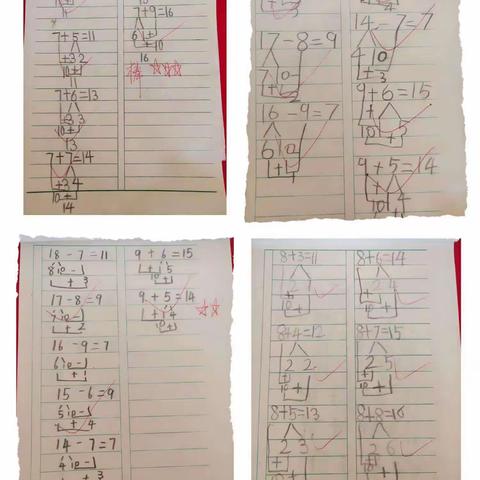 7+5=11
+3 2
10+1
11
7+6=13
+3 3
10+
13
7+7=14
+3 4
10+
14
7+9=16
6 1+
+10
16
棒
17-8=9
7 10-
16-9=7
6 10
14-7=7
4 10
+3
9+6=15
9+5=14
10 4
18-7=11
8 10-
+ 3
17-8=9
7 10-
+ 2
16-9=7
6 10-
15-6=9
5 10-
+ 4
14-7=7
4 10-
+ 3
9+6=15
1 5
10+
9+5=14
1 4
10+
8+3=11
2 1
10+
8+4=12
2 2
10+
8+5=13
2 3
10+
8+6=14
2 4
10+
8+7=15
2 5
10+
8+8=16
2 6
10+